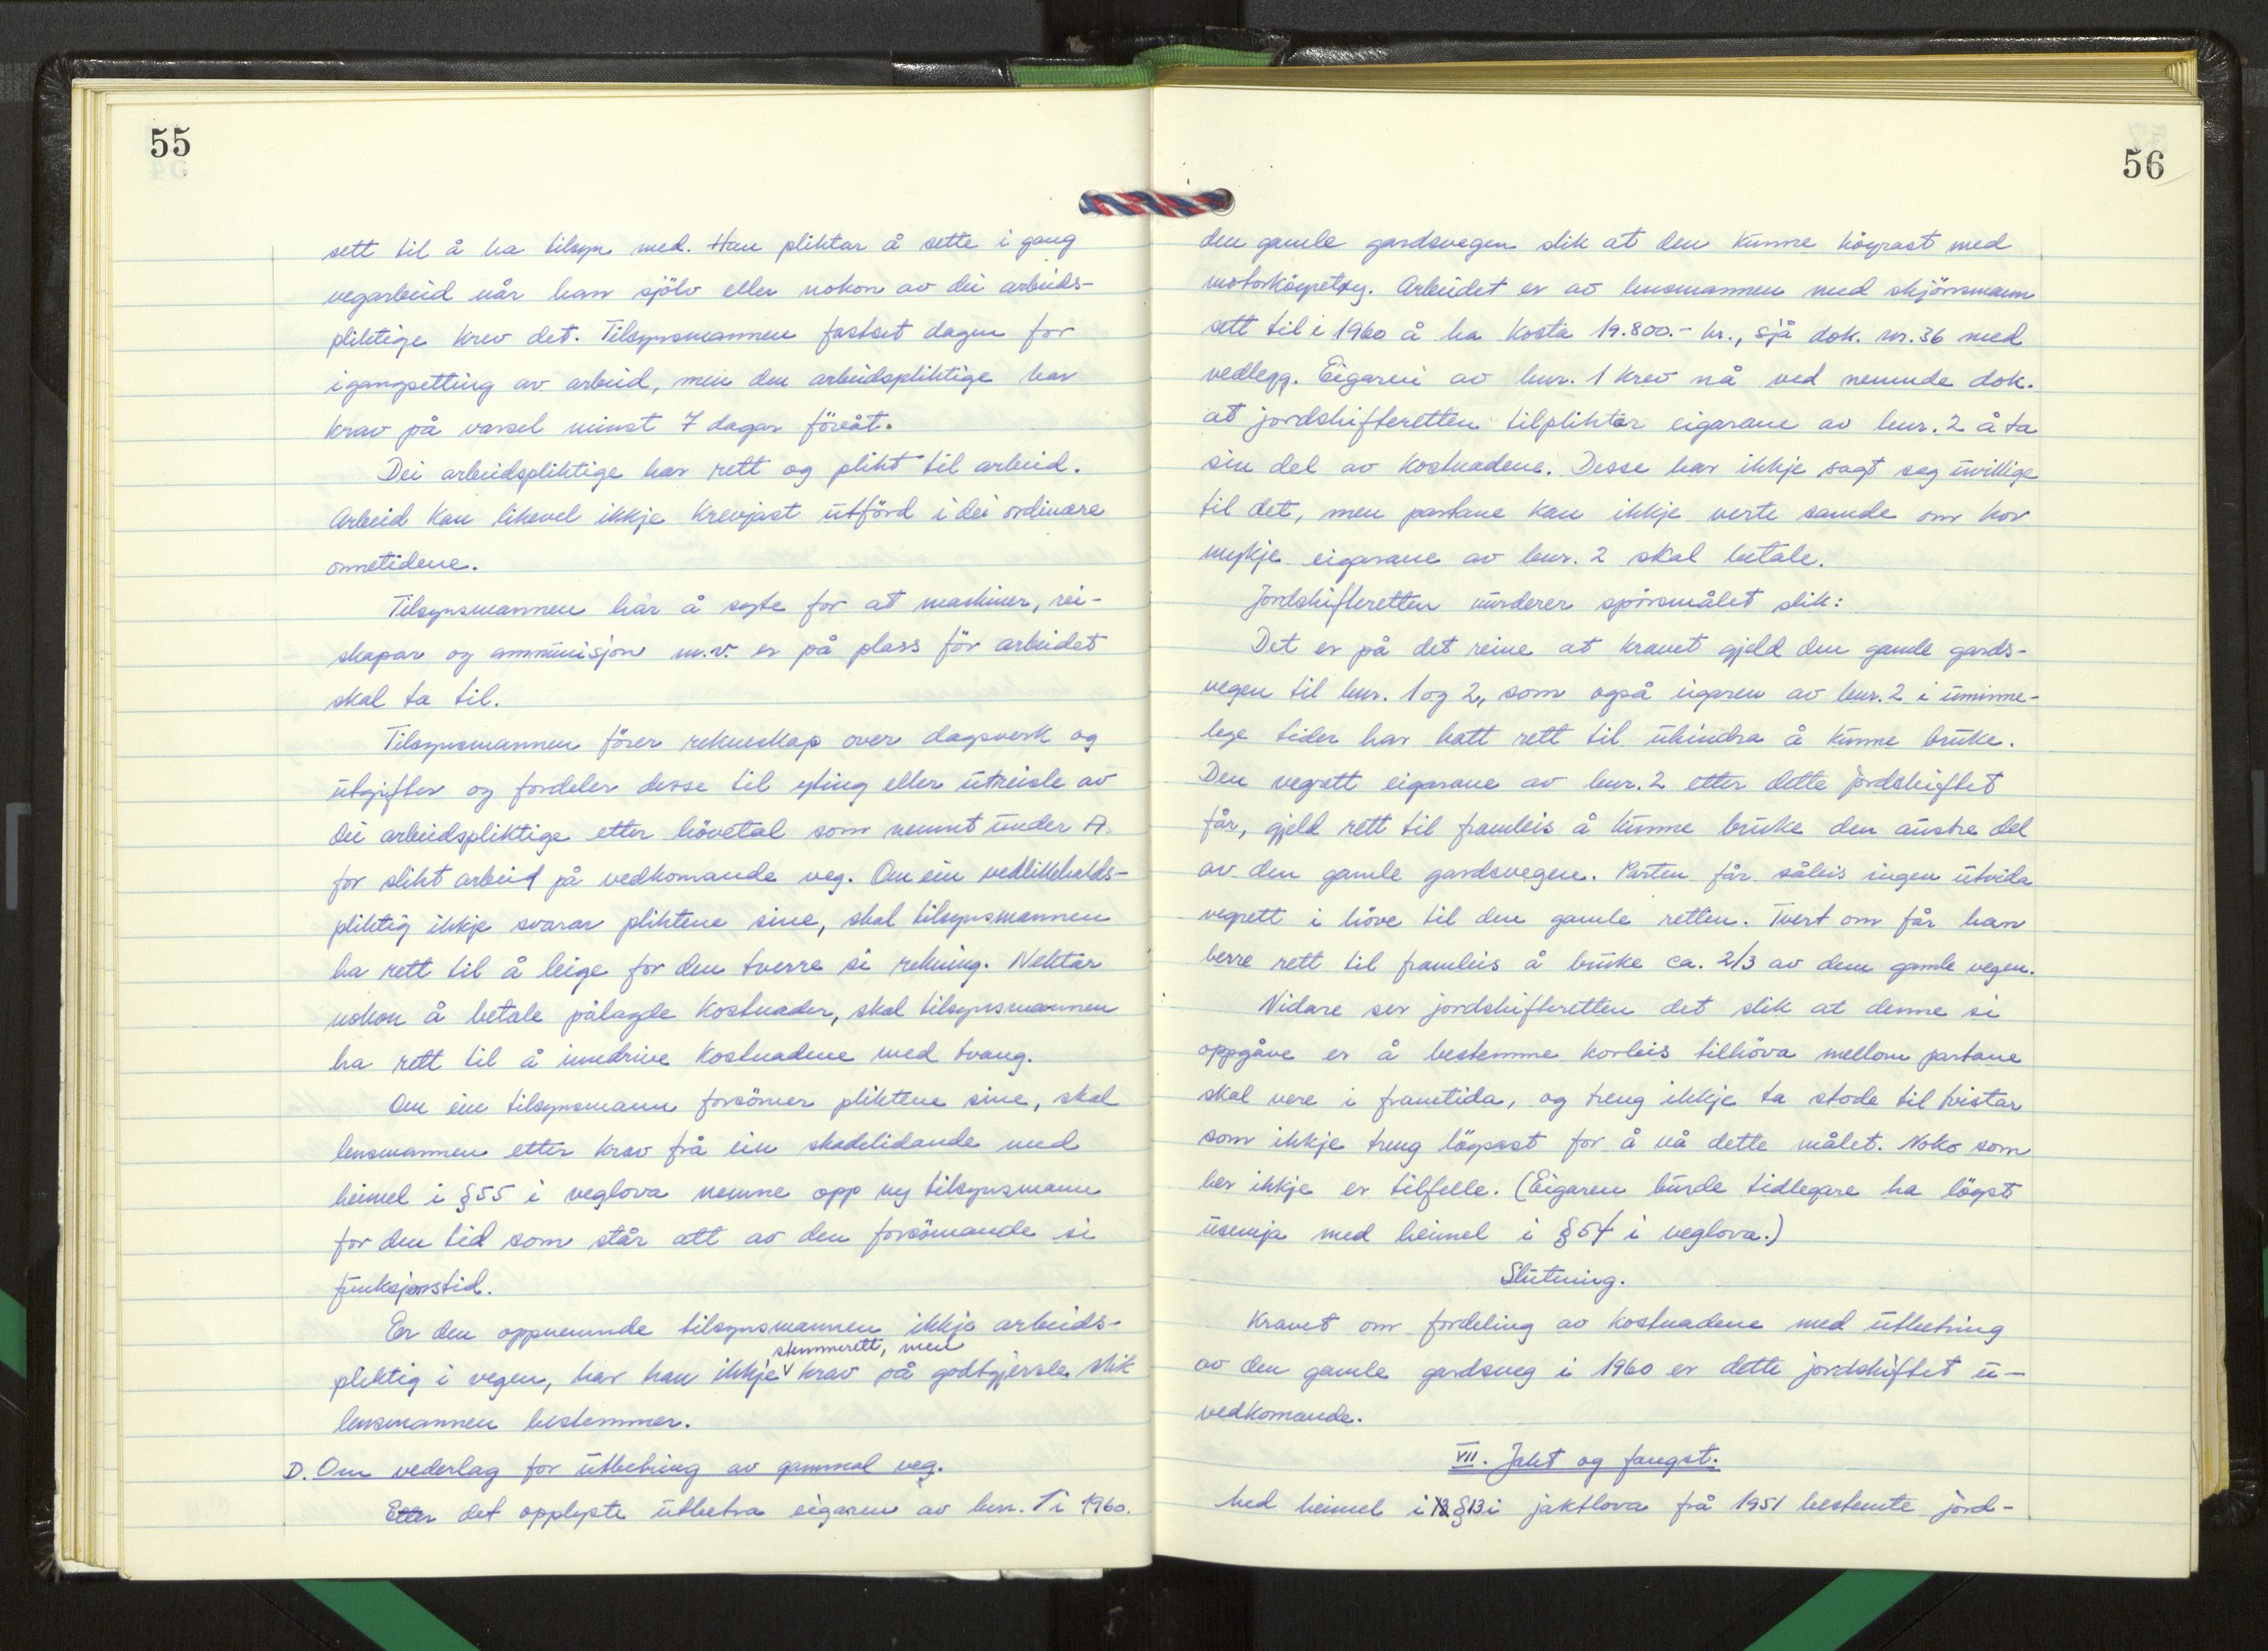 55
sett til å ha tilsyn med. Han pliktar å sette i gang
vegarbeid når han sjölv eller nokon av dei arbeids-
pliktige krev det. Tilsynsmannen fastset dagen for
igangsetting av arbeid, men den arbeidspliktige har
krav på varsel minst 7 dagar föråt.
Dei arbeidspliktige har rett og plikt til arbeid.
Arbeid kan likevel ikkje krevjast utförd i dei ordinære
onnetidene.
Tilsynsmannen har å syte for at maskiner, rei-
skapar og ammunisjon m.v. er på plass för arbeidet
skal ta til.
Tilsynsmannen förer rekneskap over dagsverk og
utgifter og fordeler desse til yting eller utreisle av
dei arbeidspliktige etter hövetal som nemnt under A.
for slikt arbeid på vedkomande veg. Om ein vedlikehalds-
pliktig ikkje svarar pliktene sine, skal tilsynsmannen
ha rett til å leige for den tverre si rekning. Nektar
nokon å betale pålagde kostnader, skal tilsynsmannen
ha rett til å inndrive kostnadene med tvang.
Om ein tilsynsmann forsömer pliktene sine, skal
lensmannen etter krav frå ein skadelidande med
heimel i §55 i veglova nemne opp ny tilsynsmann
for den tid som står att av den forsömande si
funksjonstid.
Er den oppnemnde tilsynsmannen ikkje arbeids-
stemmerett, men
pliktig i vegen, har han ikkje krav på godtgjersle slik
lensmannen bestemmer.
D. Om vederlag for utbetring av gammal veg.
Etter det opplyste utbetra eigaren av bnr. 1 i 1960.
56
den gamle gardsvegen slik at den kunne köyrast med
motorköyretöy. Arbeidet er av lensmannen med skjönsmann
sett til i 1960 å ha kosta 19.800.- kr., sjå dok. nr. 36 med
vedlegg. Eigaren av bnr. 1 krev nå ved nemnde dok.
at jordskifteretten tilpliktar eigarane av bnr. 2 å ta
sin del av kostnadene. Desse har ikkje sagt seg uvillige
til det, men partane kan ikkje verte samde om kor
mykje eigarane av bnr. 2 skal betale.
Jordskifteretten vurderer spörsmålet slik:
Det er på det reine at kravet gjeld den gamle gards-
vegen til bnr. 1 og 2, som også eigaren av bnr. 2 i uminne-
lege tider har hatt rett til uhindra å kunne bruke.
Den vegrett eigarane av bnr. 2 etter dette jordskiftet
får, gjeld rett til framleis å kunne bruke den austre del
av den gamle gardsvegen. Parten får såleis ingen utvida
vegrett i höve til den gamle retten. Tvert om får han
berre rett til framleis å bruke ca. 2/3 av den gamle vegen.
Vidare ser jordskifteretten det slik at denne si
oppgåve er å bestemme korleis tilhöva mellom partane
skal vere i framtida, og treng ikkje ta stode til tvistar
som ikkje treng löysast for å nå dette målet. Noko som
her ikkje er tilfelle. (Eigaren burde tidlegare ha löyst
usemja med heimel i §54 i veglova.)
Slutning.
Kravet om fordeling av kostnadene med utbetring
av den gamle gardsveg i 1960 er dette jordskiftet u-
vedkomande.
VII. Jakt og fangst.
Med heimel i §13 i jaktlova frå 1951 bestemte jord-